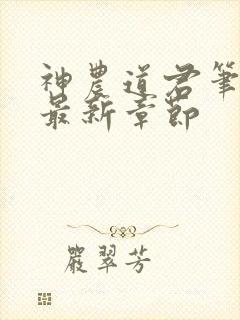 神農道君筆
最新章節
嚴翠芳